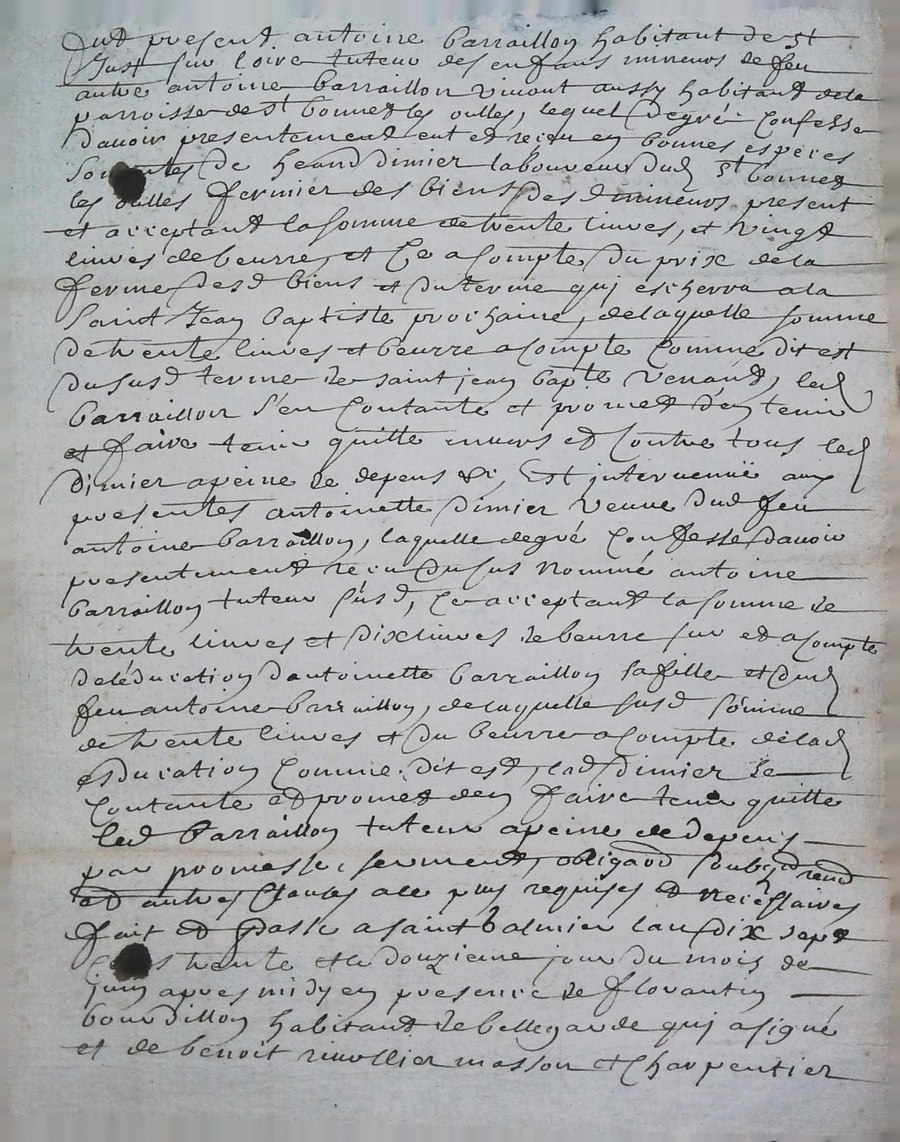 fut present antoine barraillon habitant de st
Just sur loire tuteur des enfans mineurs de feu
autre antoine barraillon vivant aussy habitant de la
parroisse de st bonnet les oulles, lequel degré confesse
davoir presentement eut et reçu en bonnes espéces
de heand dimier laboureur dud st bonnet
les oulles fermier des biens des d mineurs present
et acceptant la somme de trente livres, et vingt
livres de beurre, et Ce a Compte du prix de la
ferme des d biens et du terme qui escherra a la
Saint Jean baptiste prochaine, de laquelle somme
de trente livres et beurre a Compte Comme dit est
du sus d terme de saint jean bapte venant, led
barraillon s'en Contante et promet d'en tenir
et faire tenir quitte envers et Contre tous led
dimier a peine de depens &c, Est intervenüe aux
presentes antoinette dimier veuve dud feu
antoine barraillon, laquelle degré Confesse davoir
presentement reçu du sus nommé antoine
barraillon tuteur sus d, Ce acceptant la somme de
trente livres et dix livres de beurre sur et a Compte
de léducation dantoinette barraillon sa fille et dud
feu antoine barraillon, de laquelle sus d somme
de trente livres et du beurre a Compte de lad
education Comme dit est, lad dimier se
Contante et promet den faire tenir quitte
led barraillon tuteur a peine de depens
par promesse, serment, obligaon soubz rend
et autres Clauses a ce plus requises et necessaires
fait et passé a saint balmier lan dix sept
Cents trente et le douzieme jour du mois de
juin apres midy en presence de florantin
bourdillon habitant de bellegarde qui a signé
et de benoit rivollier masson et Charpentier